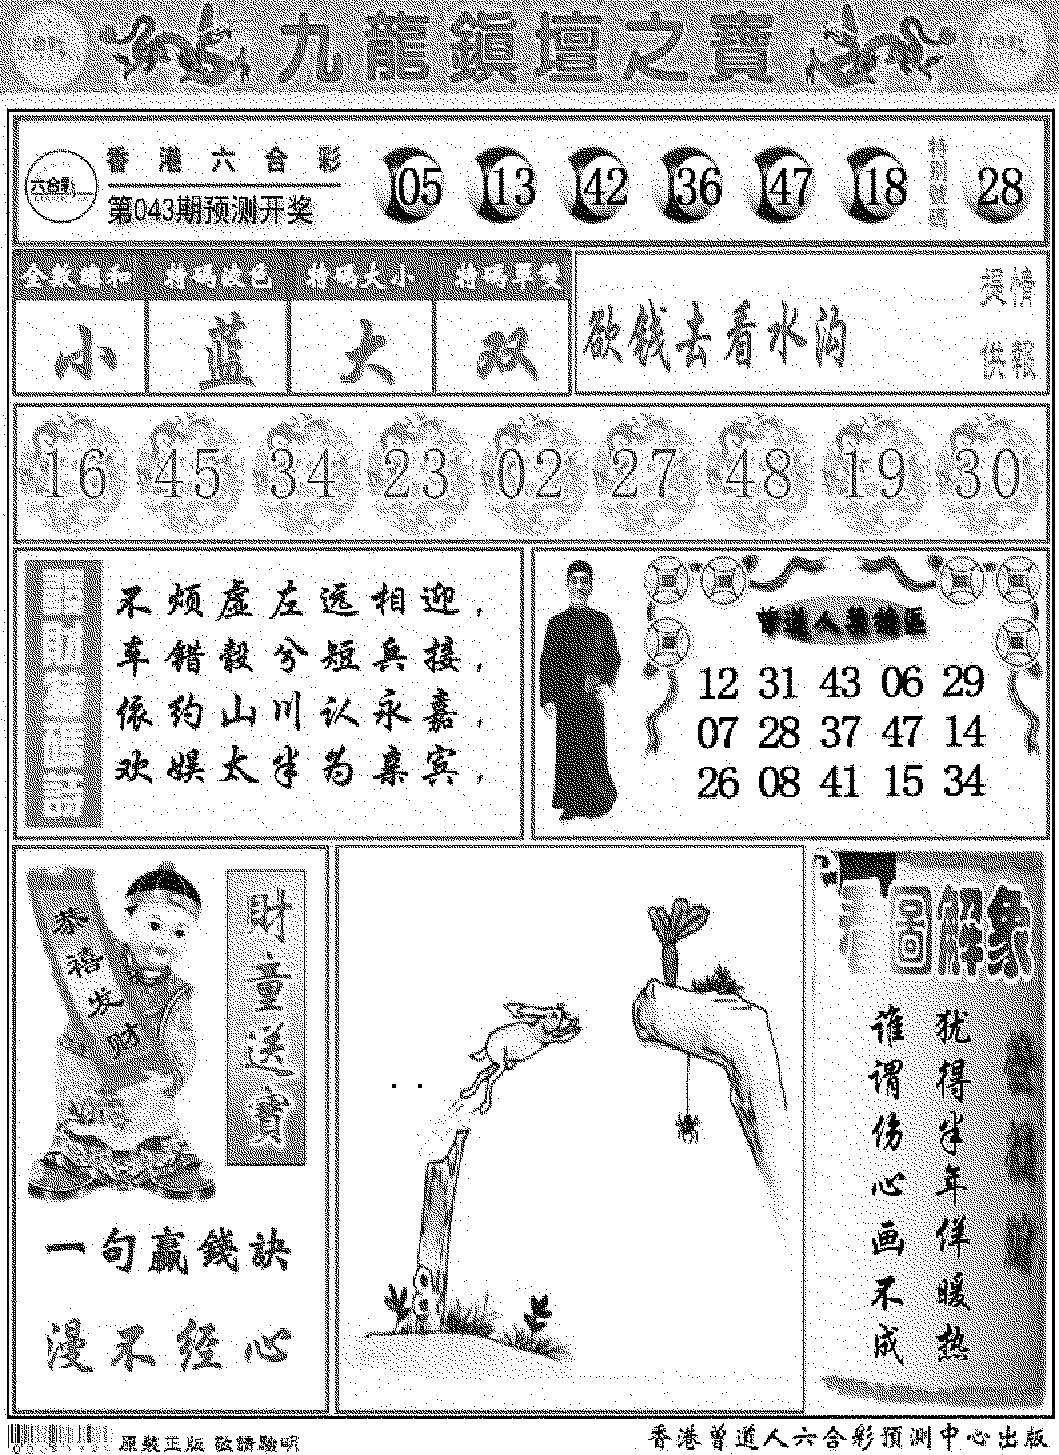 九龍鎮壇之寶
香港六合彩
六合彩
第043期预测开奖
05 13 42 36 47 18
特别號碼
28
特码大小
特码單雙
小 蓝 大 双
欲钱去看水沟
提供
情报
16 45 34 23 02 27 48 19 30
不烦虚左远相迎，
车错毂兮短兵接，
依约山川认永嘉，
欢娱太半为亲宾，
12 31 43 06 29
07 28 37 47 14
26 08 41 15 34
恭禧发财
財童送寶
一句赢錢訣
漫不经心
圖解象
犹得半年佯暖热
谁谓伤心画不成
原裝正版 敬請驗明
香港曾道人六合彩預測中心出版